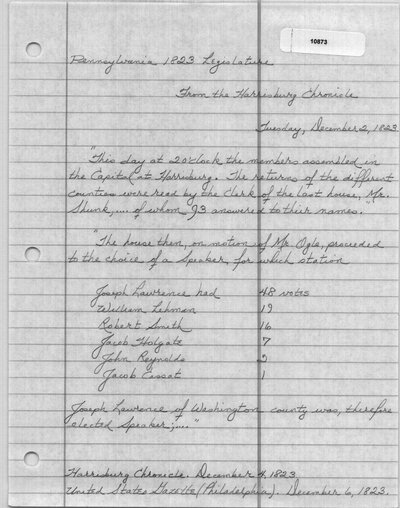 10873
Pennsylvania 1823 Legislature
From the Harrisburg Chronicle
Tuesday, December 2, 1823.
"This day at 2 o'clock the members assembled in
the Capitol at Harrisburg. The returns of the different
counties were read by the clerk of the last house, Mr.
Shunk,.... of whom 93 answered to their names."
"The house then, on motion of Mr. Ogle, proceeded
to the choice of a Speaker, for which station
Joseph Lawrence had 48 votes
William Lehman 19
Robert Smith 16
Jacob Holgate 7
John Reynolds
Jacob Cassat 1
Joseph Lawrence of Washington county was, therefore
elected Speaker;...."
Harrisburg Chronicle. December 4, 1823
United States Gazette (Philadelphia). December 6, 1823.